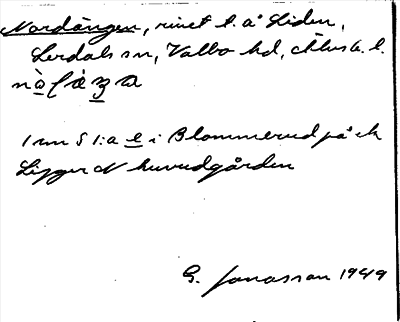 Nordängen, rivet t. å Liden,
Lerdals sn, Valbo hd, Älvsb. l.
1 mm S 1:a e i Blommerud på ek
Ligger N huvudgården
G. Jonasson 1949